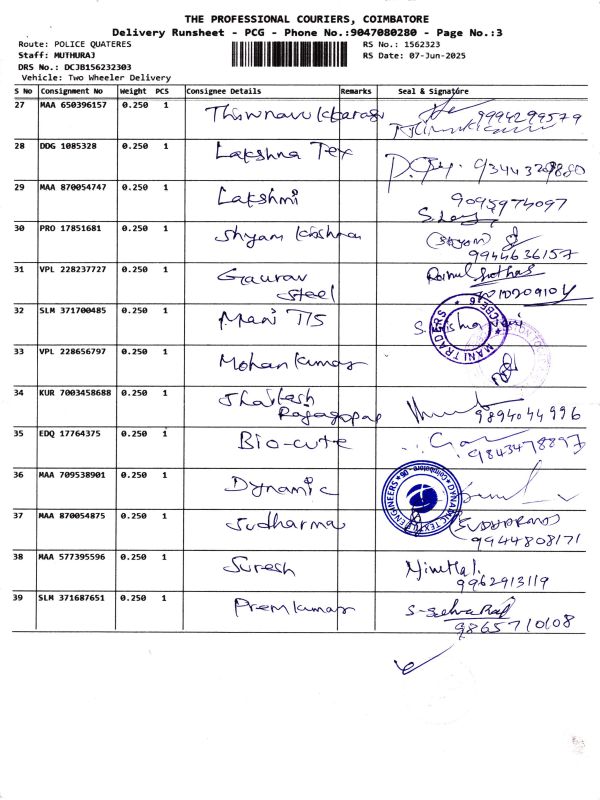 THE PROFESSIONAL COURIERS, COIMBATORE
Delivery Runsheet - PCG - Phone No.:9047080280 - Page No.:3
Route: POLICE QUATERES
RS No.: 1562323
Staff: MUTHURAJ
RS Date: 07-Jun-2025
DRS No.: DCJB156232303
Vehicle: Two Wheeler Delivery
S No Consignment No Weight PCS Consignee Details Remarks Seal & Signature
27 MAA 650396157 0.250 1 9994299579
28 DDG 1085328 0.250 1 Lakshna Tex
29 MAA 870054747 0.250 1 Lakshmi 9095974097
30 PRO 17851681 0.250 1 Shyam Krishna (SHYAM)
9944636157
31 VPL 228237727 0.250 1 Gaurav
Steel
32 SLM 371700485 0.250 1 Mani T/S MANI TRADERS
33 VPL 228656797 0.250 1 Mohan Kumar
34 KUR 7003458688 0.250 1 Shailesh
Rajagopal 9894044996
35 EDQ 17764375 0.250 1 Bio-cute
36 MAA 709538901 0.250 1 Dynamic DYNAMIC TEXTILE ENGINEERS
37 MAA 870054875 0.250 1 Sudharma
9944808171
38 MAA 577395596 0.250 1 Suresh
9962913119
39 SLM 371687651 0.250 1 Prem Kumar
9865710108